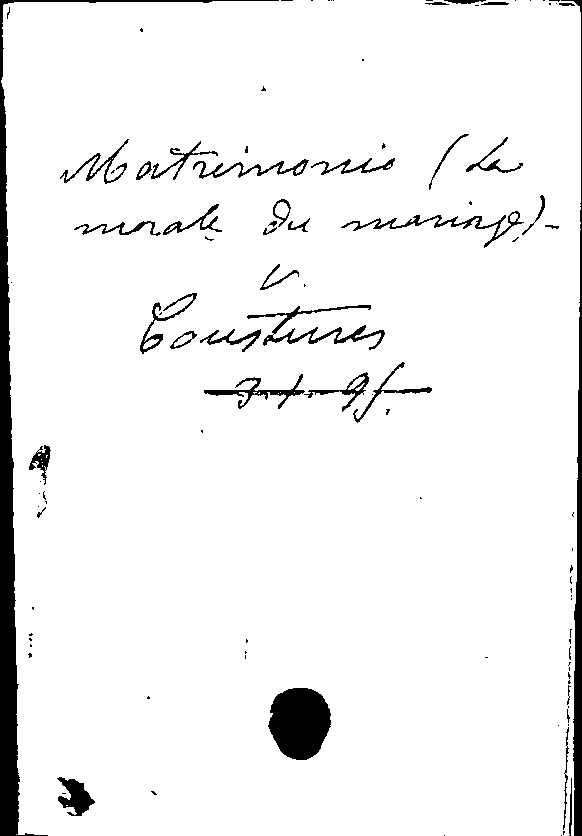 Matrimonio (La
morale du mariage)-
v.
Coustures